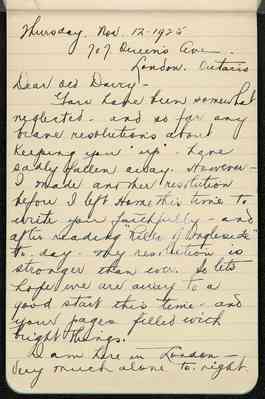 Thursday. Nov. 12-1925
707 Queen's Ave.
London. Ontario
Dear old Diary-
You have been somewhat
neglected - and so far any
brave resolutions about
keeping you "up" - have
sadly fallen away. However-
I made another resolution
before I left Home this time to
write you faithfully - and
after reading " of Ingleside"
to-day - my resolution is
stronger than ever. So lets
hope we are away to a
good start this time - and
your pages filled with
bright things.
I am here in London -
very much alone to-night.